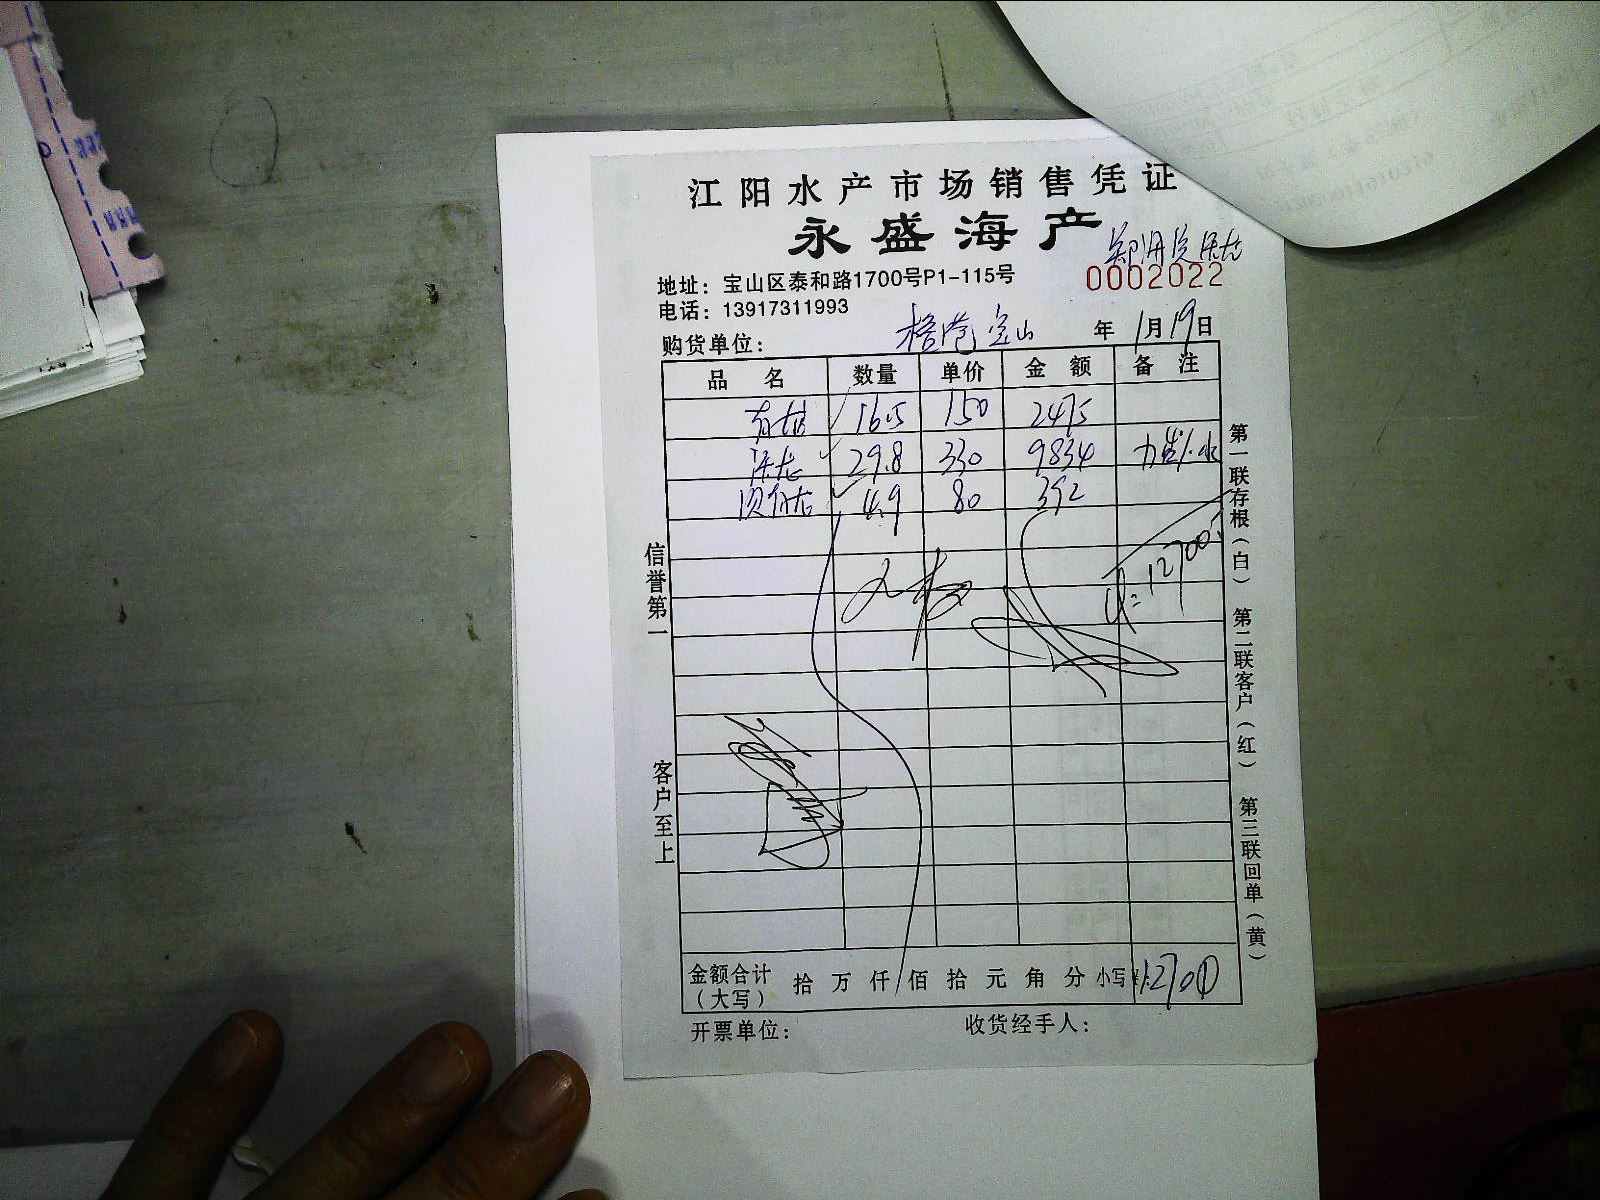 江阳水产市场销售凭证
永盛海产
地址：宝山区泰和路1700号P1-115号
0002022
电话：13917311993
购货单位： 宝山 年 1月19日
品 名 数量 单价 金 额 备 注
16.5 150 2475
29.8 330 9834
4.9 80 392
12700
信誉第一
客户至上
第一联存根（白） 第二联客户（红） 第三联回单（黄）
金额合计（大写） 拾 万 仟 佰 拾 元 角 分 小写¥12700
开票单位： 收货经手人：